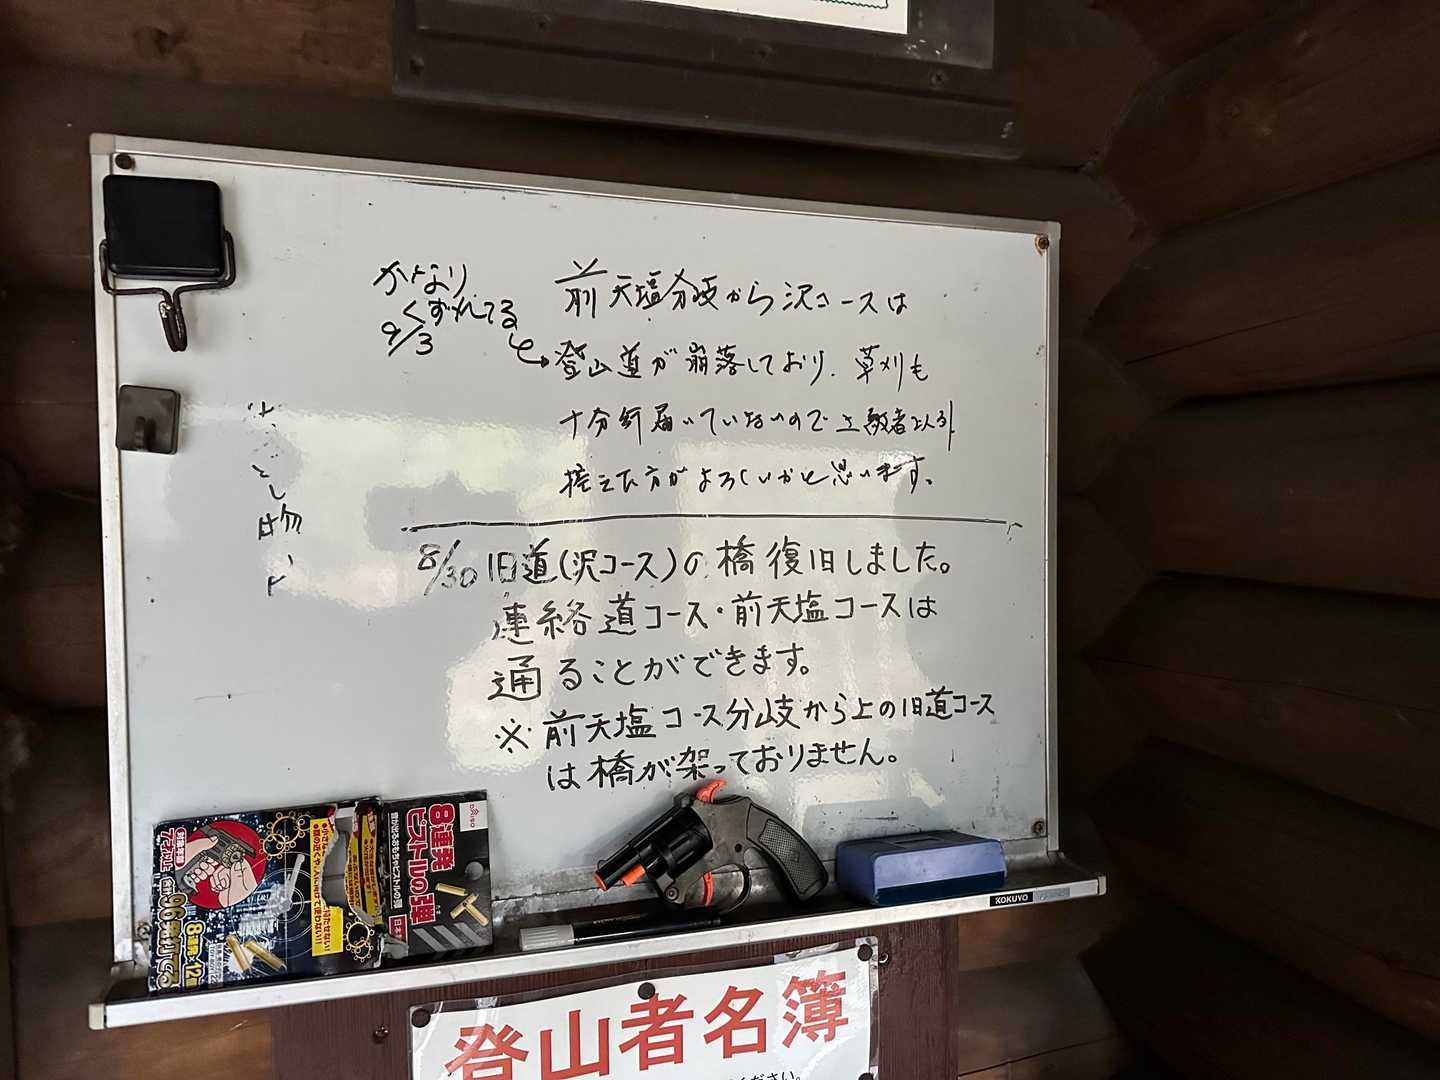 かなり
くずれてる
9/3
前天塩分岐から沢コースは
登山道が崩落しており、草刈も
十分行届いていないので上級者以外
控えた方がよろしいかと思います。
8/30 旧道(沢コース)の橋復旧しました。
連絡道コース・前天塩コースは
通ることができます。
※前天塩コース分岐から上の旧道コース
は橋が架っておりません。
とし物
8連発
ピストルの弾
音が出るおもちゃピストルの弾
日本
DAISO
96発
8連発×12
KOKUYO
登山者名簿
ください。